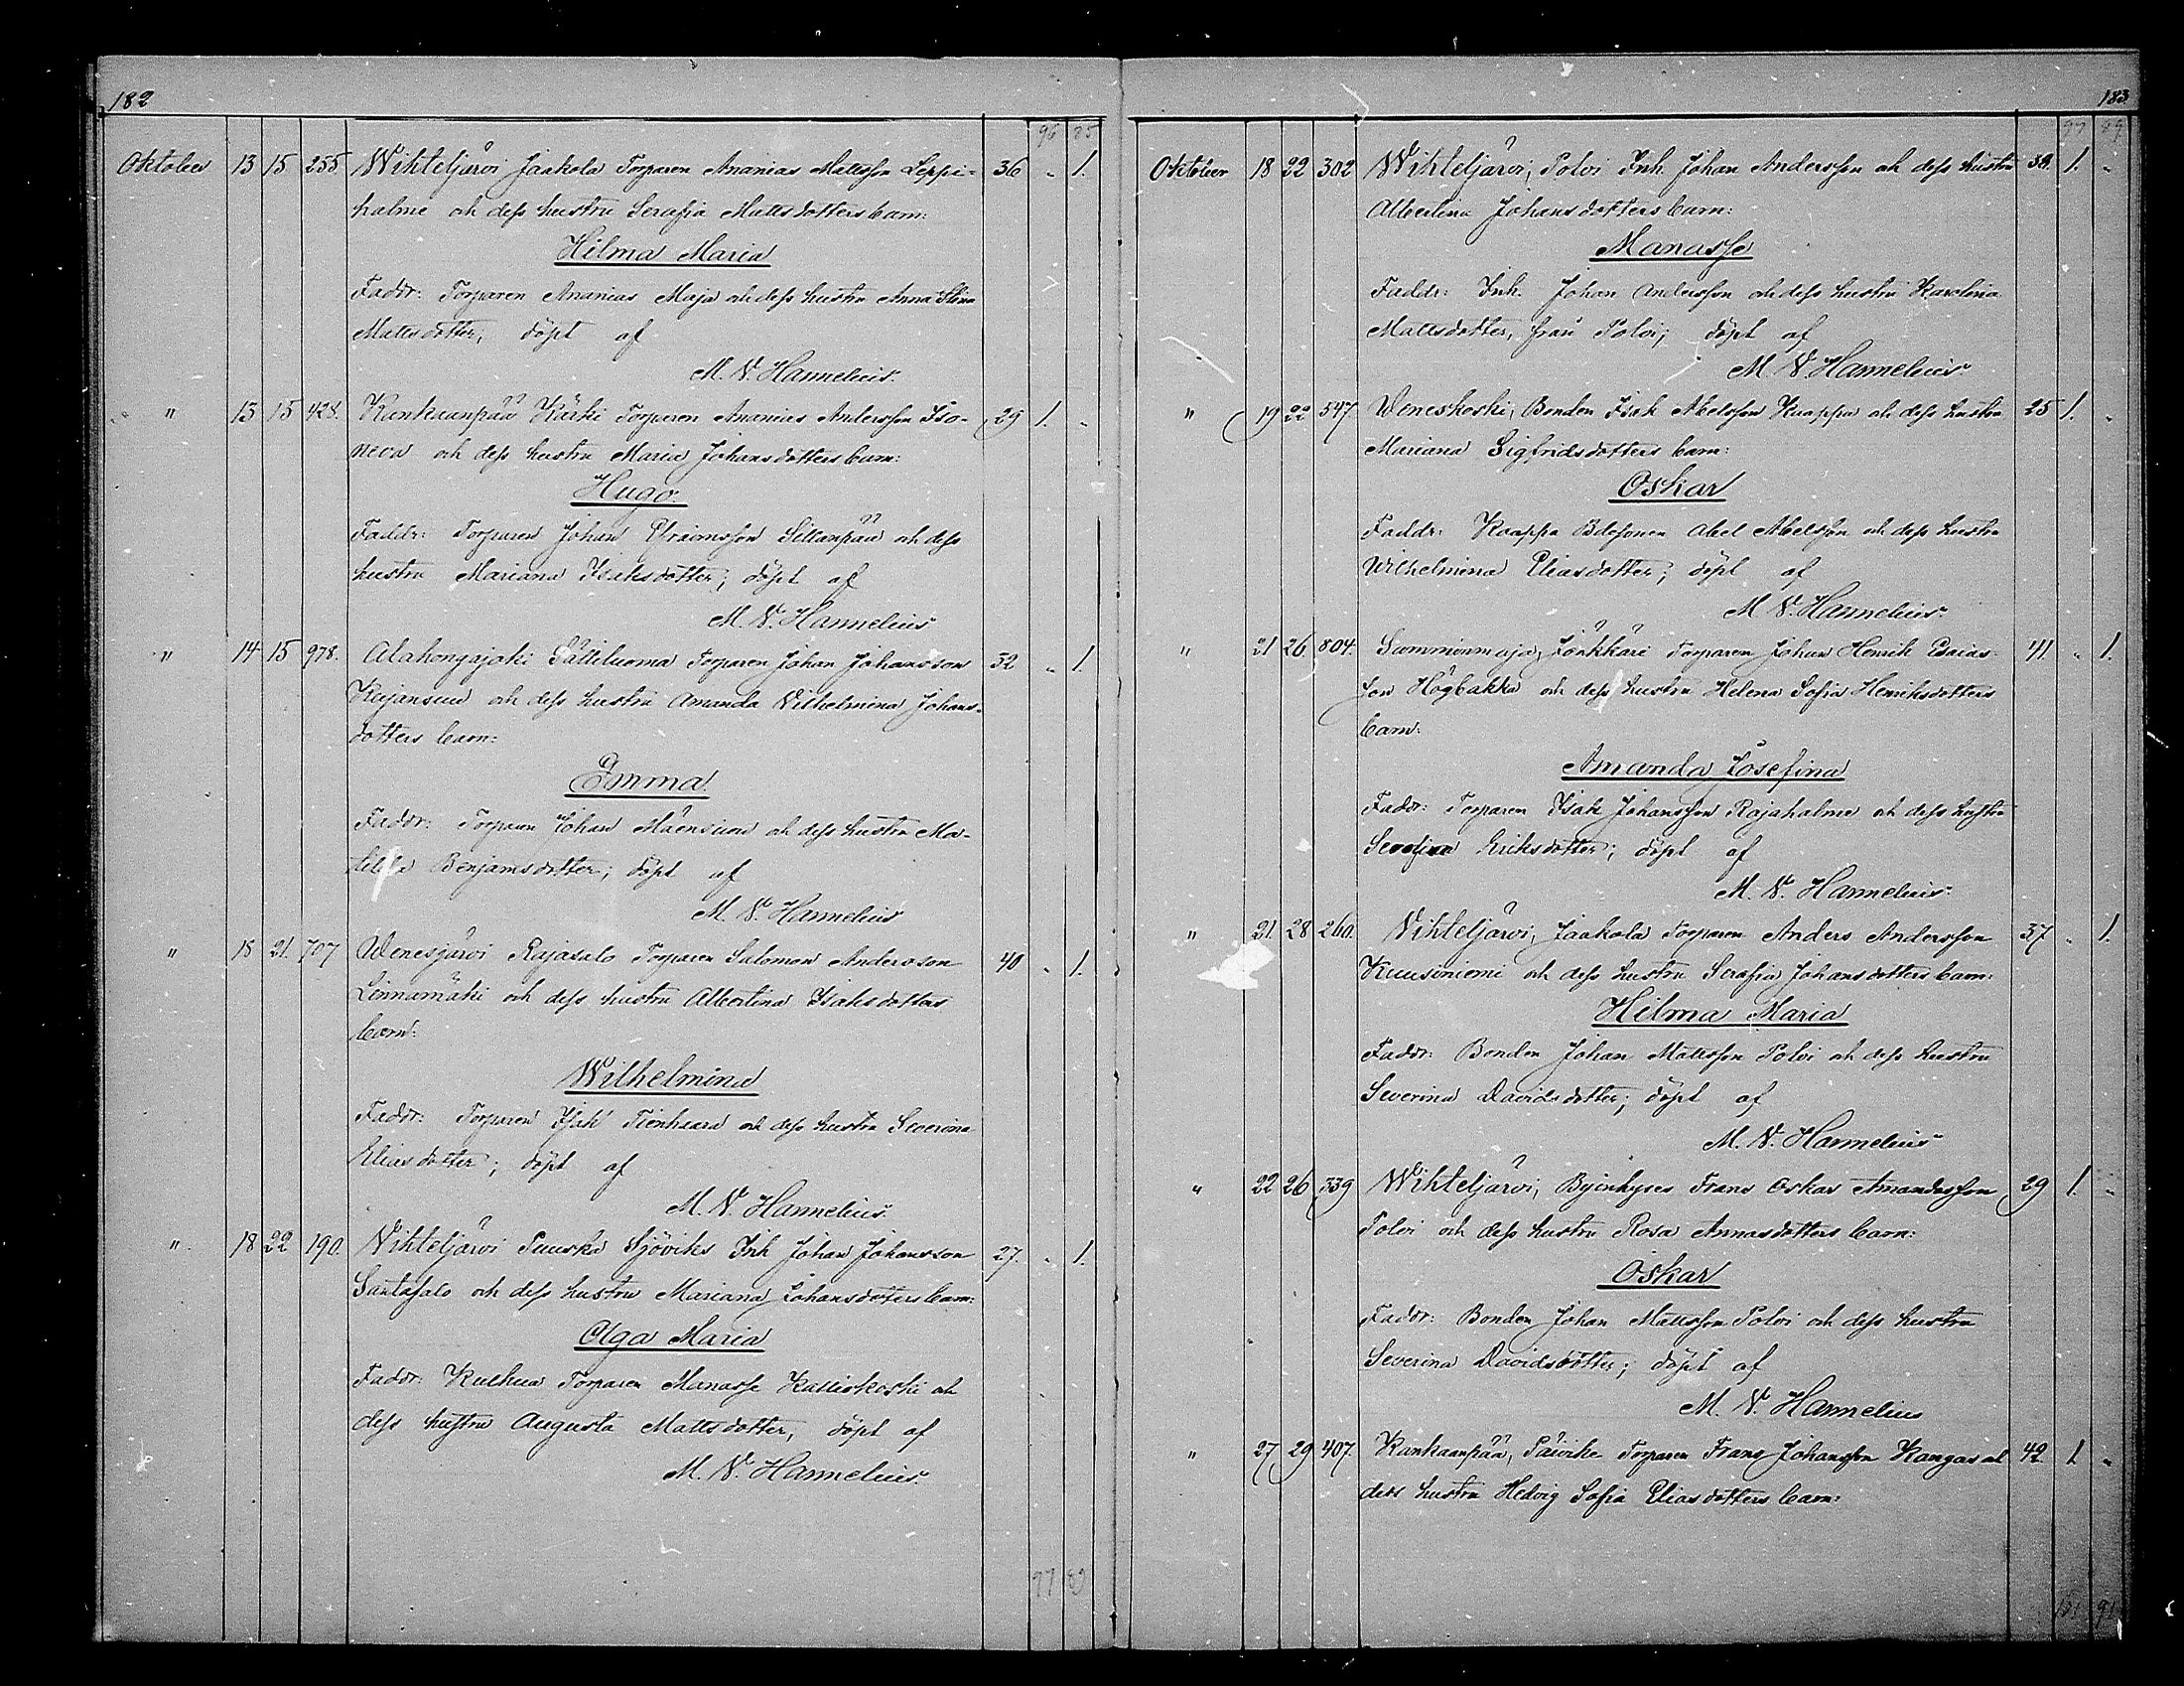 182
96 85
Oktober 13 15 255. Wihteljärvi Jaakola Torparen Ananias Mattsson Leppi= 36 " 1.
halme och dess hustru Serafia Mattsdotters barn:
Hilma Maria
Faddr: Torparen Ananias Maja och dess hustru Anna Stina
Mattsdotter; döpt af
M. W. Hannelius.
" 13 15 428. Kankaanpää Karhi Torparen Ananias Andersson Iso- 29 1. "
neva och dess hustru Maria Johansdotters barn:
Hugo.
Faddr: Torparen Johan Efraimsson Sillanpää och dess
hustru Mariana Isaksdotter; döpt af
M. W. Hannelius
" 14 15 978. Alahongajoki Pättiluoma Torparen Johan Johansson 32 " 1.
Kajansuu och dess hustru Amanda Wilhelmina Johans-
dotters barn:
Emma.
Faddr: Torparen Johan Mäensivu och dess hustru Ma-
tilda Benjamsdotter; döpt af
M. W. Hannelius
" 18 21. 707 Wenesjärvi Rajasalo Torparen Salomon Andersson 40 " 1.
Linnamäki och dess hustru Albertina Isaksdotters
barn:
Wilhelmina
Faddr: Torparen Isak Tienhaara och dess hustru Severina
Eliasdotter; döpt af
M. W. Hannelius.
" 18 22 190. Wihteljärvi Puuska Sjöviks Inh Johan Johansson 27. " 1.
Santasalo och dess hustru Mariana Johansdotters barn:
Olga Maria
Faddr: Kulhua Torparen Manasse Kalliokoski och
dess hustru Augusta Mattsdotter, döpt af
M. W. Hannelius.
97 89
183
97 89
Oktober 18 22 302 Wihteljärvi, Polvi Inh. Johan Andersson och dess hustru 38. 1. "
Albertina Johansdotters barn:
Manasse
Faddr: Inh. Johan Andersson och dess hustru Karolina
Mattsdotter, från Polvi; döpt af
M. W. Hannelius.
" 19 22 547 Weneskoski, Bonden Isak Abelsson Kaappa och dess hustru 25 1. "
Mariana Sigfridsdotters barn:
Oskar
Faddr: Kaappa Bdesonen Abel Abelsson och dess hustru
Wilhelmina Eliasdotter; döpt af
M. W. Hannelius.
" 21 26 804. Samminmaja, Jönkkäri Torparen Johan Henrik Esaias- 41. " 1.
son Högbakka och dess hustru Helena Sofia Henriksdotters
barn:
Amanda Josefina
Faddr: Torparen Isak Johansson Rajahalme och dess hustru
Serafina Eriksdotter; döpt af
M. W. Hannelius.
" 21 28 260. Wihteljärvi, Jaakola Torparen Anders Andersson 37 " 1.
Kuusiniemi och dess hustru Serafia Johansdotters barn:
Hilma Maria
Faddr: Bonden Johan Mattsson Polvi och dess hustru
Severina Davidsdotter; döpt af
M. W. Hannelius
" 22 26 339 Wihteljärvi, Byinhyses Frans Oskar Amandasson 29 1. "
Polvi och dess hustru Rosa Annasdotters barn:
Oskar
Faddr: Bonden Johan Mattsson Polvi och dess hustru
Severina Davidsdotter; döpt af
M. W. Hannelius
" 27 29 407. Kankaanpää, Päivike Torparen Frans Johansson Kangas och 42. 1. "
dess hustru Hedvig Sofia Eliasdotters barn:
101 91